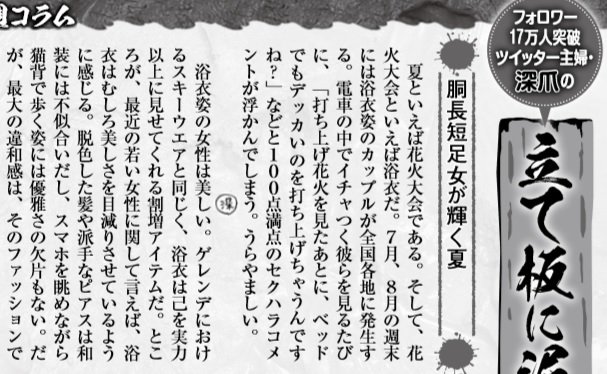 フォロワー
17万人突破
ツイッター主婦・
深爪の
立て板に泥
胴長短足女が輝く夏
コラム
夏といえば花火大会である。そして、花
火大会といえば浴衣だ。7月、8月の週末
には浴衣姿のカップルが全国各地に発生す
る。電車の中でイチャつく彼らを見るたび
に、「打ち上げ花火を見たあとに、ベッド
でもデッカいのを打ち上げちゃうんです
ね?」などと100点満点のセクハラコメ
ントが浮かんでしまう。うらやましい。
浴衣姿の女性は美しい。ゲレンデにおけ
るスキーウエアと同じく、浴衣は己を実力
以上に見せてくれる割増アイテムだ。とこ
ろが、最近の若い女性に関して言えば、浴
衣はむしろ美しさを目減りさせているよう
に感じる。脱色した髪や派手なピアスは和
装には不似合いだし、スマホを眺めながら
猫背で歩く姿には優雅さの欠片もない。だ
が、最大の違和感は、そのファッションで